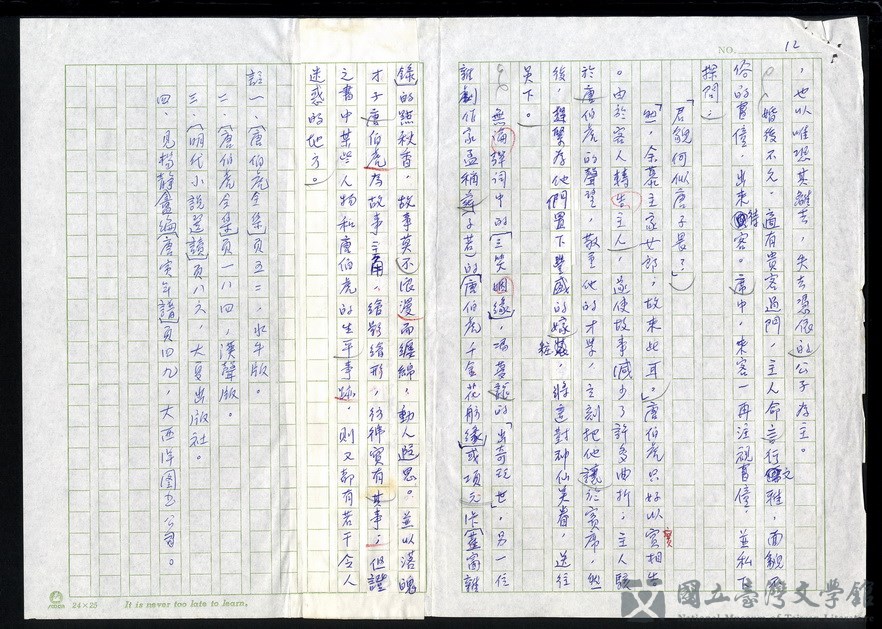 NO. 12
，也以唯恐其離去，失去憑依的公子為主。
婚後不久，適有貴客過門，主人命言行文雅，面貌不
俗的書僮，出來待客。席中，來客一再注視書僮，並私下
探問：
「君貌何似唐子畏？」
「然，余慕主家女郎，故來此耳。」唐伯虎只好以實相告
。由於客人轉告主人，遂使故事減少了許多曲折；主人駭
於唐伯虎的聲望，敬重他的才學，立刻把他讓於賓席，然
後，趕緊為他們置下豐盛的嫁粧，將這對神仙美眷，送往
吳下。
無論彈詞中的「三笑姻緣」，馮夢龍的「出奇玩世」，另一位
雜劇作家孟稱舜（子若）的「唐伯虎千金花舫緣」或項元作「蕉窗雜
錄」的點秋香，故事莫不浪漫而纏綿，動人遐思。並以落魄
才子唐伯虎為故事主角，繪影繪形，彷彿實有其事；但證
之書中某些人物和唐伯虎的生平事跡，則又都有若干令人
迷惑的地方。
註一、「唐伯虎全集」頁五二，水牛版。
二、「唐伯虎全集」頁一八四，漢聲版。
三、「明代小說選讀」頁八六，大夏出版社。
四、見楊靜盦編「唐寅年譜」頁四九，大西洋圖書公司。
24×25 It is never too late to learn.
國立臺灣文學館
National Museum of Taiwan Literature